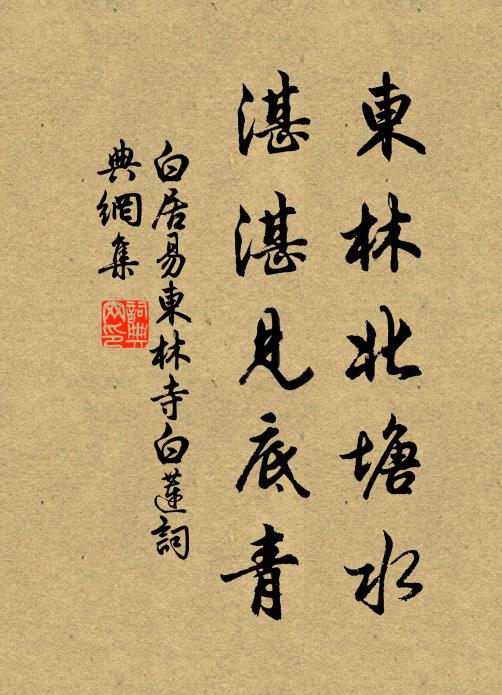 東林北塘水
湛湛見底青
白居易東林寺白蓮詞
典網集
詞典
網印